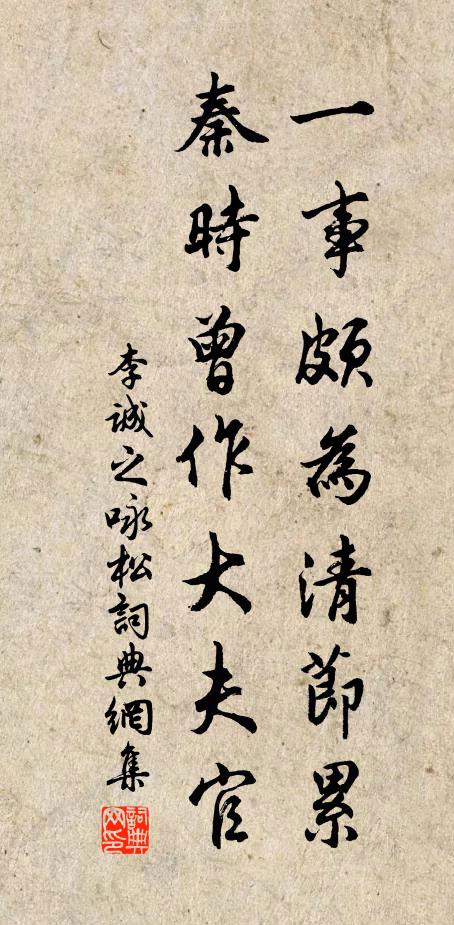 一事頗為清節累
秦時曾作大夫官
李誠之咏松詞典網集
詞典网印